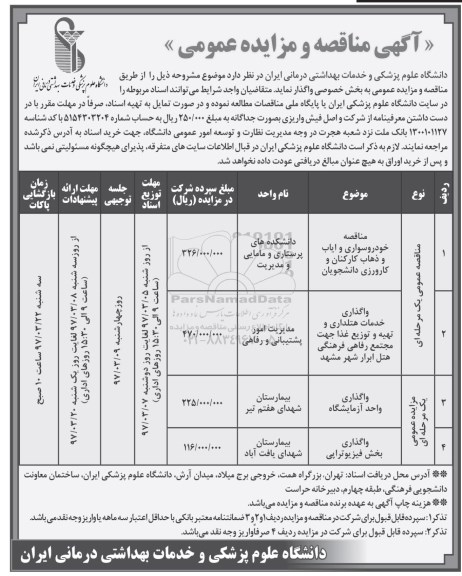 « آگهی مناقصه و مزایده عمومی »
دانشگاه علوم پزشکی و خدمات بهداشتی درمانی ایران
دانشگاه علوم پزشکی و خدمات بهداشتی درمانی ایران در نظر دارد موضوع مشروحه ذیل را از طریق
مناقصه و مزایده عمومی به بخش خصوصی واگذار نماید. متقاضیان واجد شرایط می‌توانند اسناد مربوطه را
در سایت دانشگاه علوم پزشکی ایران یا پایگاه ملی مناقصات مطالعه نموده و در صورت تمایل به تهیه اسناد، صرفاً در مهلت مقرر با در
دست داشتن معرفینامه از شرکت و اصل فیش واریزی بصورت جداگانه به مبلغ ۲۵۰/۰۰۰ ریال به حساب شماره ۵۱۵۴۳۰۳۲۰۴ با کد شناسه
۱۳۰۰۱۰۱۱۲۷ بانک ملت نزد شعبه هجرت در وجه مدیریت نظارت و توسعه امور عمومی دانشگاه، جهت خرید اسناد به آدرس ذکرشده
مراجعه نمایند. لازم به ذکر است دانشگاه علوم پزشکی ایران در قبال اطلاعات سایت های متفرقه، پذیرای هیچگونه مسئولیتی نمی باشد
و پس از خرید اوراق به هیچ عنوان مبالغ دریافتی عودت داده نخواهد شد.
ردیف
نوع
موضوع
نام واحد
مبلغ سپرده شرکت در مزایده (ریال)
مهلت توزیع اسناد
جلسه توجیهی
مهلت ارائه پیشنهادات
زمان بازگشایی پاکات
۱
مناقصه عمومی یک مرحله ای
مناقصه
خودروسواری و ایاب
و ذهاب کارکنان و
کارورزی دانشجویان
دانشکده های
پرستاری و مامایی
و مدیریت
۳۲۶/۰۰۰/۰۰۰
از روز شنبه ۹۷/۰۳/۰۵ لغایت روز دوشنبه ۹۷/۰۳/۰۷
(ساعت ۹ الی ۱۵:۳۰ روزهای اداری)
روز چهارشنبه ۹۷/۰۳/۰۹
از روز سه شنبه ۹۷/۰۳/۰۸ لغایت روز یک شنبه ۹۷/۰۳/۲۰
(ساعت ۹ الی ۱۵:۳۰ روزهای اداری)
سه شنبه ۹۷/۰۳/۲۲ ساعت ۱۰ صبح
۲
واگذاری
خدمات هتلداری و
تهیه و توزیع غذا جهت
مجتمع رفاهی فرهنگی
هتل ابرار شهر مشهد
مدیریت امور
پشتیبانی و رفاهی
۴۷۰/۰۰۰/۰۰۰
۳
مزایده عمومی یک مرحله ای
واگذاری
واحد آزمایشگاه
بیمارستان
شهدای هفتم تیر
۲۲۵/۰۰۰/۰۰۰
۴
واگذاری
بخش فیزیوتراپی
بیمارستان
شهدای یافت آباد
۱۱۶/۰۰۰/۰۰۰
ParsNamadData
** آدرس محل دریافت اسناد: تهران، بزرگراه همت، خروجی برج میلاد، میدان آرش، دانشگاه علوم پزشکی ایران، ساختمان معاونت
دانشجویی فرهنگی، طبقه چهارم، دبیرخانه حراست
** هزینه چاپ آگهی به عهده برنده مناقصه و مزایده می‌باشد.
تذکر۱: سپرده قابل قبول برای شرکت در مناقصه و مزایده ردیف ۱ و ۲ و ۳ ضمانتنامه معتبر بانکی با حداقل اعتبار سه ماهه یا واریز وجه نقد می باشد.
تذکر۲: سپرده قابل قبول برای شرکت در مزایده ردیف ۴ صرفا واریز وجه نقد می‌باشد.
دانشگاه علوم پزشکی و خدمات بهداشتی درمانی ایران